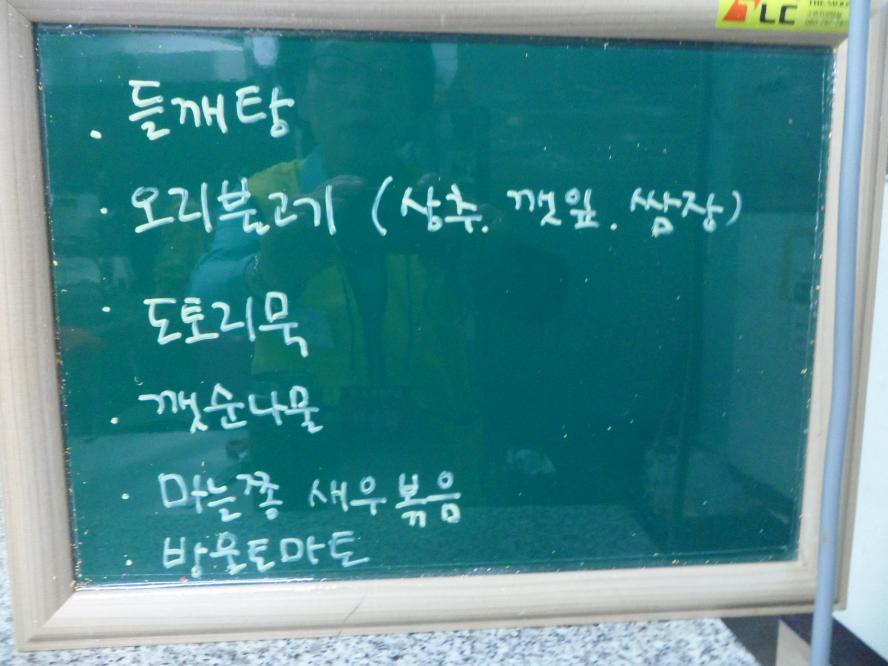 LC
. 들깨탕
. 오리불고기 (상추. 깻잎. 쌈장)
. 도토리묵
. 깻순나물
. 마늘쫑 새우볶음
. 방울토마토